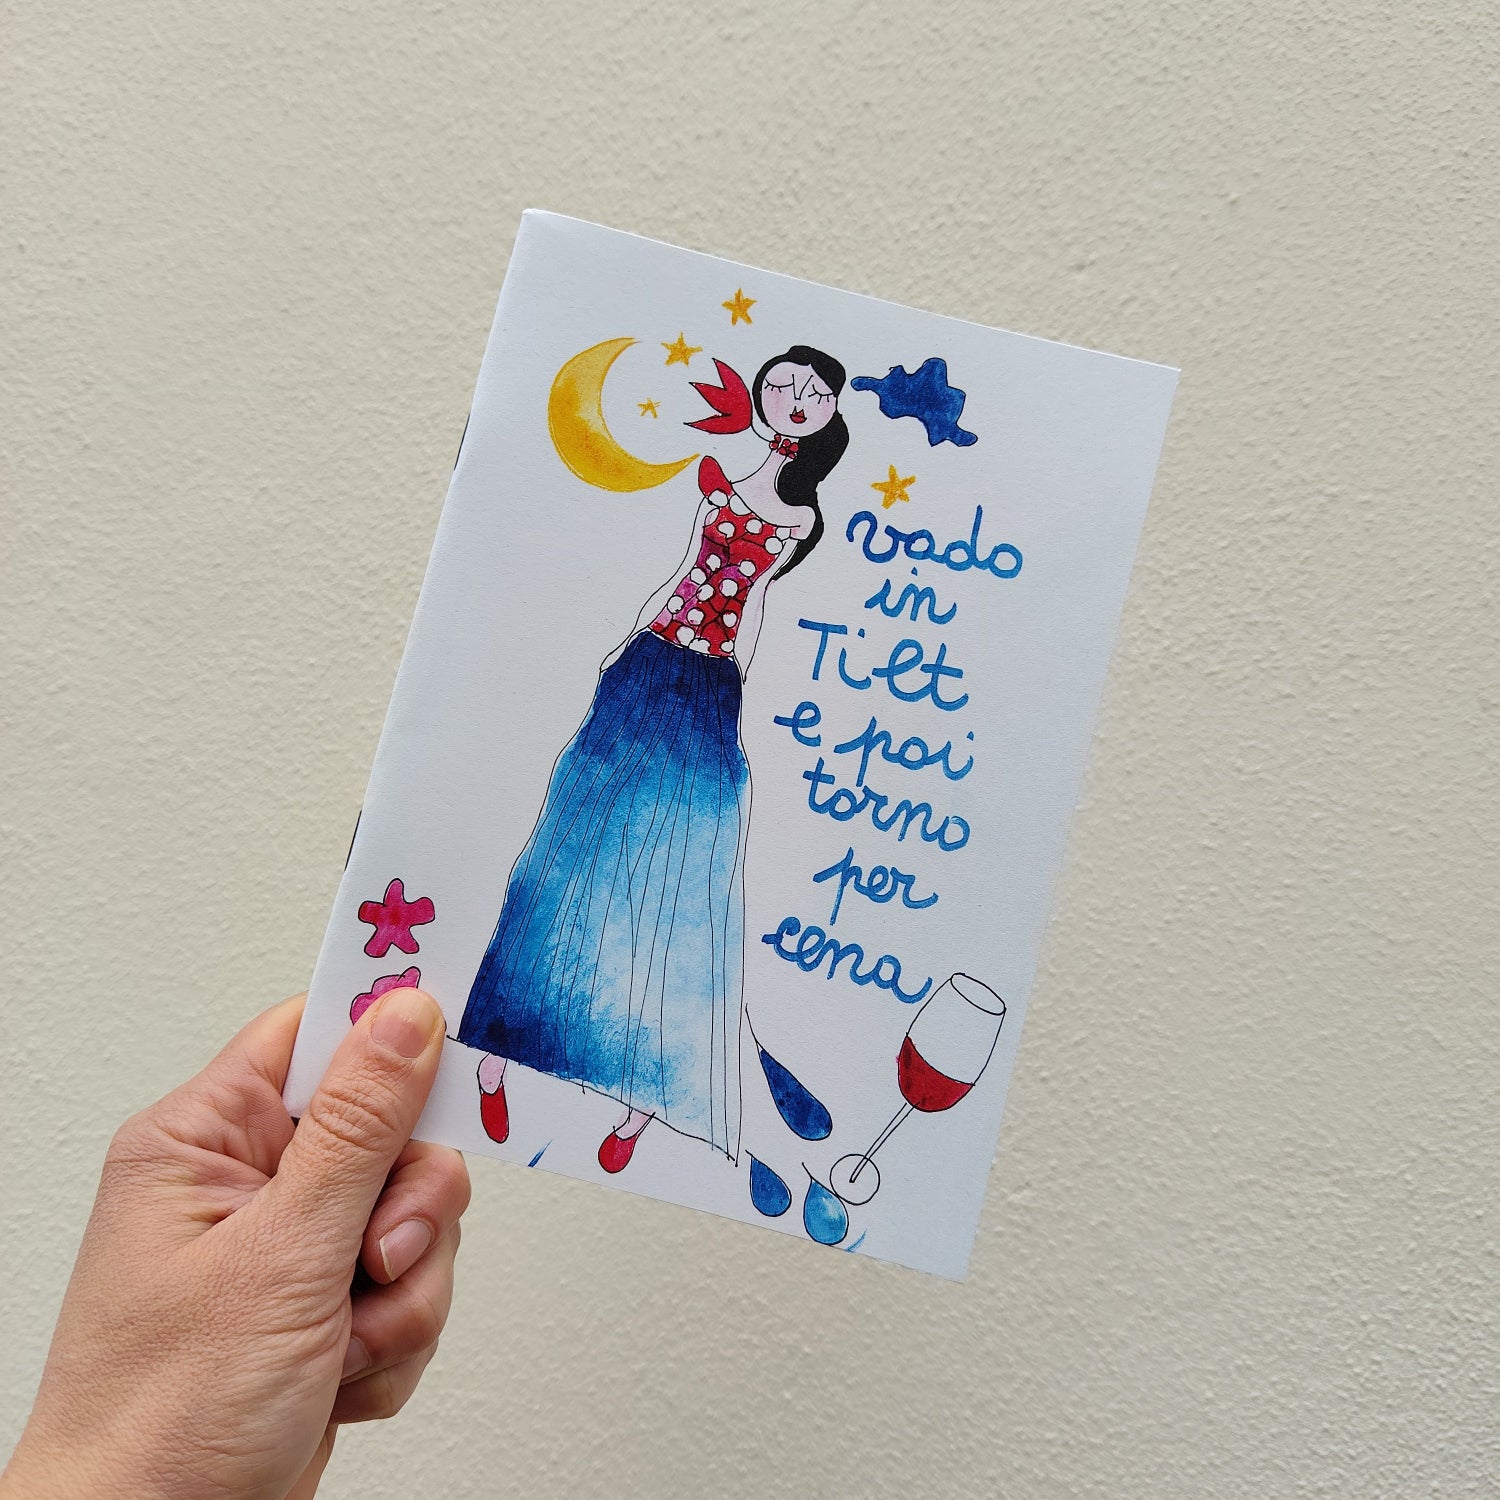 vado
in
Tilt
e poi
torno
per
cena